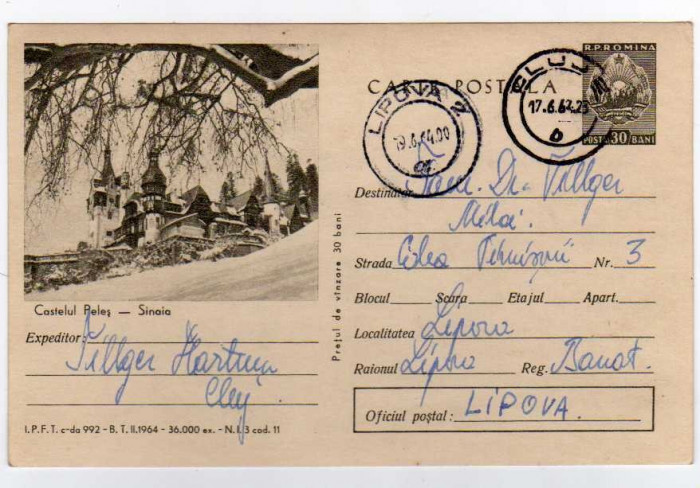 CARTE POSTALA
R.P.ROMINA
POSTA 30 BANI
CLUJ
17.6.64.23
LIPOVA 2
19.6.64.00
Castelul Peleș — Sinaia
Expeditor: Fillger Hartmn
Cluj
I.P.F.T. c-da 992 - B. T. II.1964 - 36.000 ex. - N.I. 3 cod. 11
Prețul de vînzare 30 bani
Destinatar Fam. Dr. Fillger
Mihai.
Strada Nr. 3
Blocul Scara Etajul Apart.
Localitatea Lipova
Raionul Lipova Reg. Banat.
Oficiul poștal: LIPOVA.